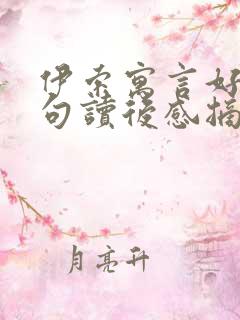 伊索寓言好
句讀後感摘
月亮升